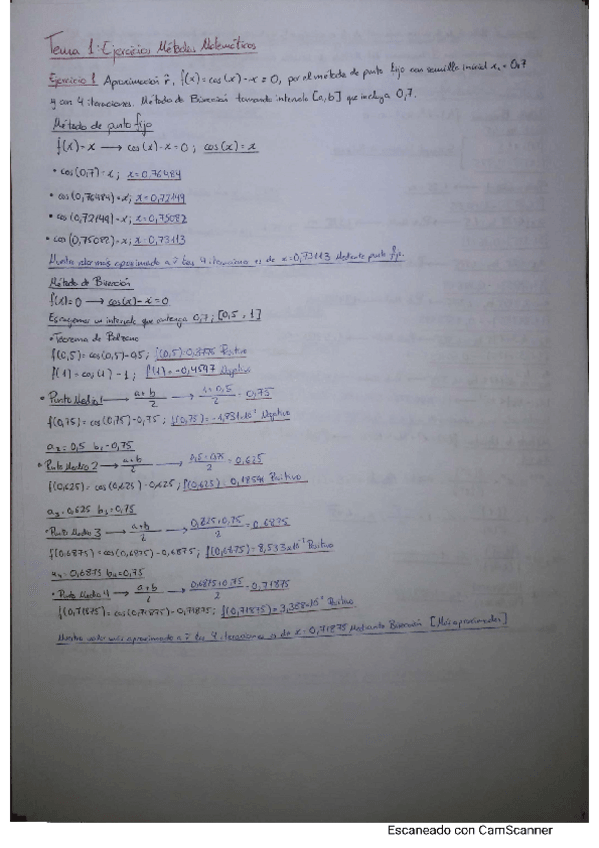 Tema 1: Ejercicios Métodos Matemáticos
Ejercicio 1 Aproximación r̂, f(x)=cos(x)-x=0, por el método de punto fijo con semilla inicial x₁=0,7
y con 4 iteraciones. Método de Bisección tomando intervalo [a,b] que incluya 0,7.
Método de punto fijo
f(x)=x → cos(x)-x=0; cos(x)=x
• cos(0,7)=x; x=0,76484
• cos(0,76484)=x; x=0,72149
• cos(0,72149)=x; x=0,75082
• cos(0,75082)=x; x=0,73113
valor más aproximado a r̂ 4 iteraciones es de x=0,73113 Mediante punto fijo.
Método de Bisección
f(x)=0 → cos(x)-x=0
Escogemos un intervalo que contenga 0,7; [0,5 ; 1]
• Teorema de Bolzano
f(0,5)=cos(0,5)-0,5; f(0,5)=0,3776 Positivo
f(1)=cos(1)-1; f(1)=-0,4597 Negativo
• Punto Medio 1 → a+b/2 → 1+0,5/2 = 0,75
f(0,75)=cos(0,75)-0,75; Negativo
a₂=0,5 b₂=0,75
• Punto Medio 2 → a+b/2 → 0,5+0,75/2 = 0,625
f(0,625)=cos(0,625)-0,625; f(0,625)=0,18596 Positivo
a₃=0,625 b₃=0,75
• Punto Medio 3 → a+b/2 → 0,625+0,75/2 = 0,6875
f(0,6875)=cos(0,6875)-0,6875; f(0,6875)=8,533x10⁻² Positivo
a₄=0,6875 b₄=0,75
• Punto Medio 4 → a+b/2 → 0,6875+0,75/2 = 0,71875
f(0,71875)=cos(0,71875)-0,71875; f(0,71875)=3,388x10⁻² Positivo
valor más aproximado a r̂ 4 iteraciones es de x=0,71875 Mediante Bisección [Más aproximado]
Escaneado con CamScanner